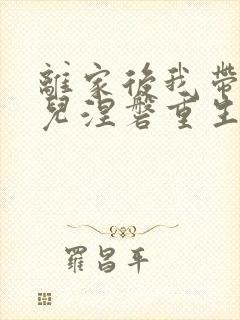 離家後我帶
兒涅磐重生
羅昌平